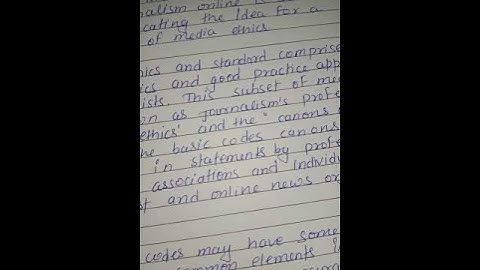 nalism online
cating the Idea for a
of media ethics
ics and standard comprise
ics and good practice app
ists. This subset of me
on as journalism's profe
ethics' and the "canons
he basic codes canons
in statements by prof
associations and individu
and online news or
codes may have some
common elements